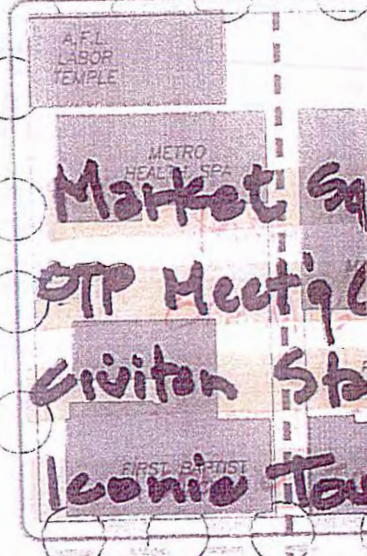 A.F.L.
LABOR
TEMPLE
METRO
HEALTH SPA
Market Sq
OTP Meet'g C
Civitan Sta
FIRST BAPTIST
Iconic Tow